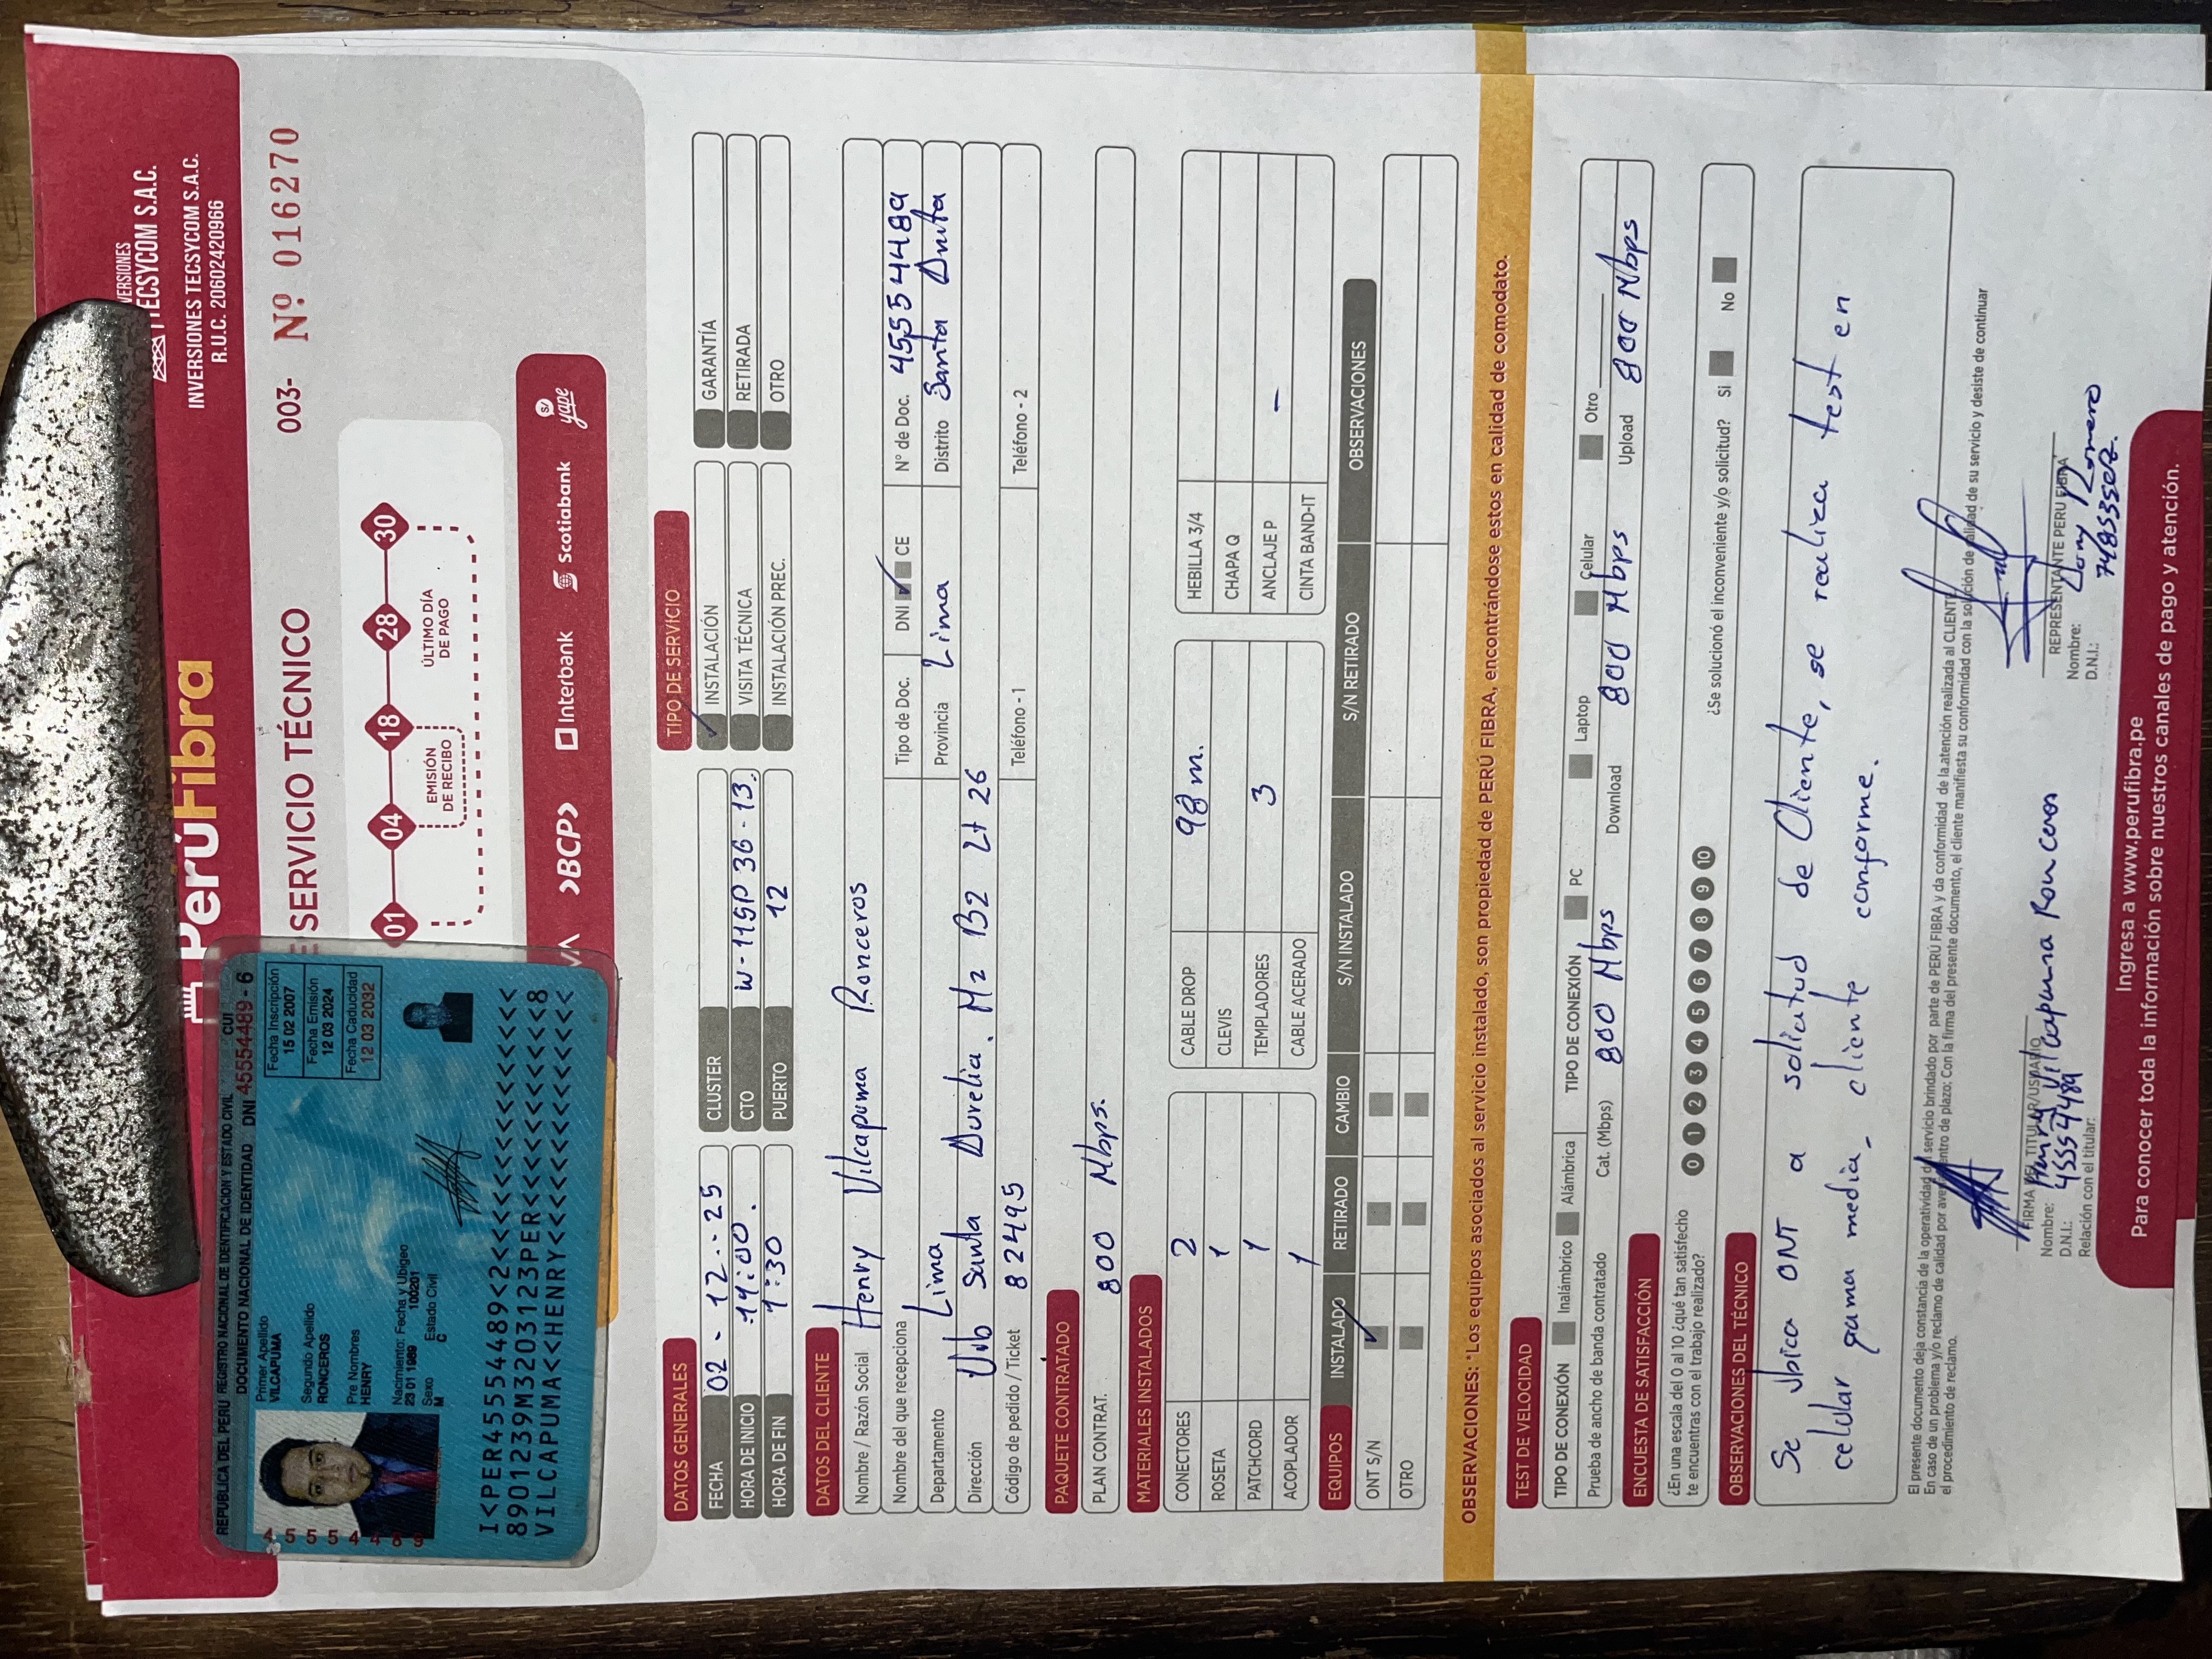 VERSIONES
TECSYCOM S.A.C.
INVERSIONES TECSYCOM S.A.C.
R.U.C. 20602420966
PerúFibra
SERVICIO TÉCNICO
003- Nº 016270
01 04 18 28 30
EMISIÓN DE RECIBO
ÚLTIMO DÍA DE PAGO
>BCP> Interbank Scotiabank S/ yape
REPUBLICA DEL PERU REGISTRO NACIONAL DE IDENTIFICACION Y ESTADO CIVIL CUI
DOCUMENTO NACIONAL DE IDENTIDAD DNI 45554489 - 6
Primer Apellido
VILCAPUMA
Segundo Apellido
RONCEROS
Pre Nombres
HENRY
Nacimiento: Fecha y Ubigeo
23 01 1989 100201
Sexo Estado Civil
M C
Fecha Inscripción
15 02 2007
Fecha Emisión
12 03 2024
Fecha Caducidad
12 03 2032
45554489
I<PER45554489<2<<<<<<<<<<<<<<<
8901239M3203123PER<<<<<<<<<<<8
VILCAPUMA<<HENRY<<<<<<<<<<<<<<
DATOS GENERALES
TIPO DE SERVICIO
FECHA 02 - 12 - 25 CLUSTER INSTALACIÓN GARANTÍA
HORA DE INICIO 14:00. CTO W-119P 36-13. VISITA TÉCNICA RETIRADA
HORA DE FIN 1:30 PUERTO 12 INSTALACIÓN PREC. OTRO
DATOS DEL CLIENTE
Nombre / Razón Social Henry Vilcapuma Ronceros
Nombre del que recepciona Tipo de Doc. DNI CE N° de Doc. 45554489
Departamento Lima Provincia Lima Distrito Santa Anita
Dirección Urb Santa Aurelia. Mz B2 Lt 26
Código de pedido / Ticket 82495 Teléfono - 1 Teléfono - 2
PAQUETE CONTRATADO
PLAN CONTRAT. 800 Mbps.
MATERIALES INSTALADOS
CONECTORES 2 CABLE DROP 98 m. HEBILLA 3/4
ROSETA 1 CLEVIS CHAPA Q
PATCHCORD 1 TEMPLADORES 3 ANCLAJE P -
ACOPLADOR 1 CABLE ACERADO CINTA BAND-IT
EQUIPOS INSTALADO RETIRADO CAMBIO S/N INSTALADO S/N RETIRADO OBSERVACIONES
ONT S/N
OTRO
OBSERVACIONES: *Los equipos asociados al servicio instalado, son propiedad de PERÚ FIBRA, encontrándose estos en calidad de comodato.
TEST DE VELOCIDAD
TIPO DE CONEXIÓN Inalámbrico Alámbrica TIPO DE CONEXIÓN PC Laptop Celular Otro
Prueba de ancho de banda contratado Cat. (Mbps) 800 Mbps Download 800 Mbps Upload 800 Mbps
ENCUESTA DE SATISFACCIÓN
¿En una escala del 0 al 10 ¿qué tan satisfecho
te encuentras con el trabajo realizado? 0 1 2 3 4 5 6 7 8 9 10 ¿Se solucionó el inconveniente y/o solicitud? Si No
OBSERVACIONES DEL TÉCNICO
Se Ubica ONT a solicitud de Cliente, se realiza test en
celular gama media, cliente conforme.
El presente documento deja constancia de la operatividad del servicio brindado por parte de PERÚ FIBRA y da conformidad de la atención realizada al CLIENTE.
En caso de un problema y/o reclamo de calidad por avería dentro de plazo: Con la firma del presente documento, el cliente manifiesta su conformidad con la solución de calidad de su servicio y desiste de continuar
el procedimiento de reclamo.
FIRMA DEL TITULAR/USUARIO
Nombre: Henry Vilcapuma Ronceros
D.N.I.: 45554489
Relación con el titular:
REPRESENTANTE PERÚ FIBRA
Nombre: Romero
D.N.I.:
Ingresa a www.perufibra.pe
Para conocer toda la información sobre nuestros canales de pago y atención.